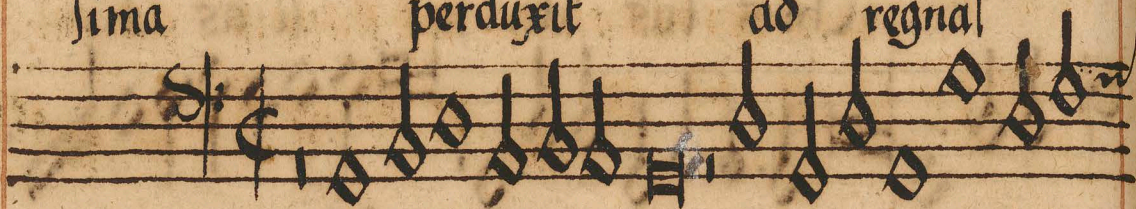 sima perduxit ad regna